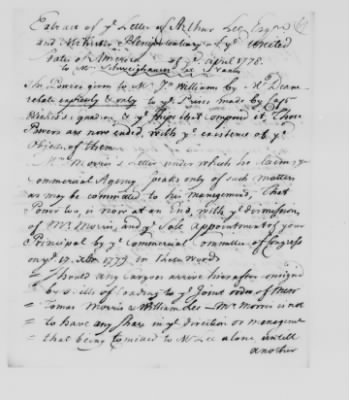 Extract of ye Letter of Arthur Lee Esqr
and Minister Plenipotentiary of ye united
States of America of ye April 1778.
to Mr Schweighauser Lee at Nantes
The Powers given to Mr J. Williams by Mr Deane
relate expressly & only to ye Prizes made by Capt
Weeks's squadron & ye ships that compos'd it, Those
Powers are now ended, with ye existence of ye
Objects of them.
Mr Morris's Letter under which he claims ye
Commercial Agency speaks only of such matters
as may be committed to his management, That
Power too, is now at an End, with ye dismission,
of Mr Morris, and ye Sole appointment of your
Principal by ye Commercial Committee of Congress
on ye 17. Xbr 1777 in these Words
= Should any Cargoes arrive hereafter consign'd
= by Bills of Loading to ye Joint order of Messrs
= Tomas Morris & William Lee — Mr Morris is not
= to have any Share in ye direction or management
= that being to Mr Lee alone untill
another